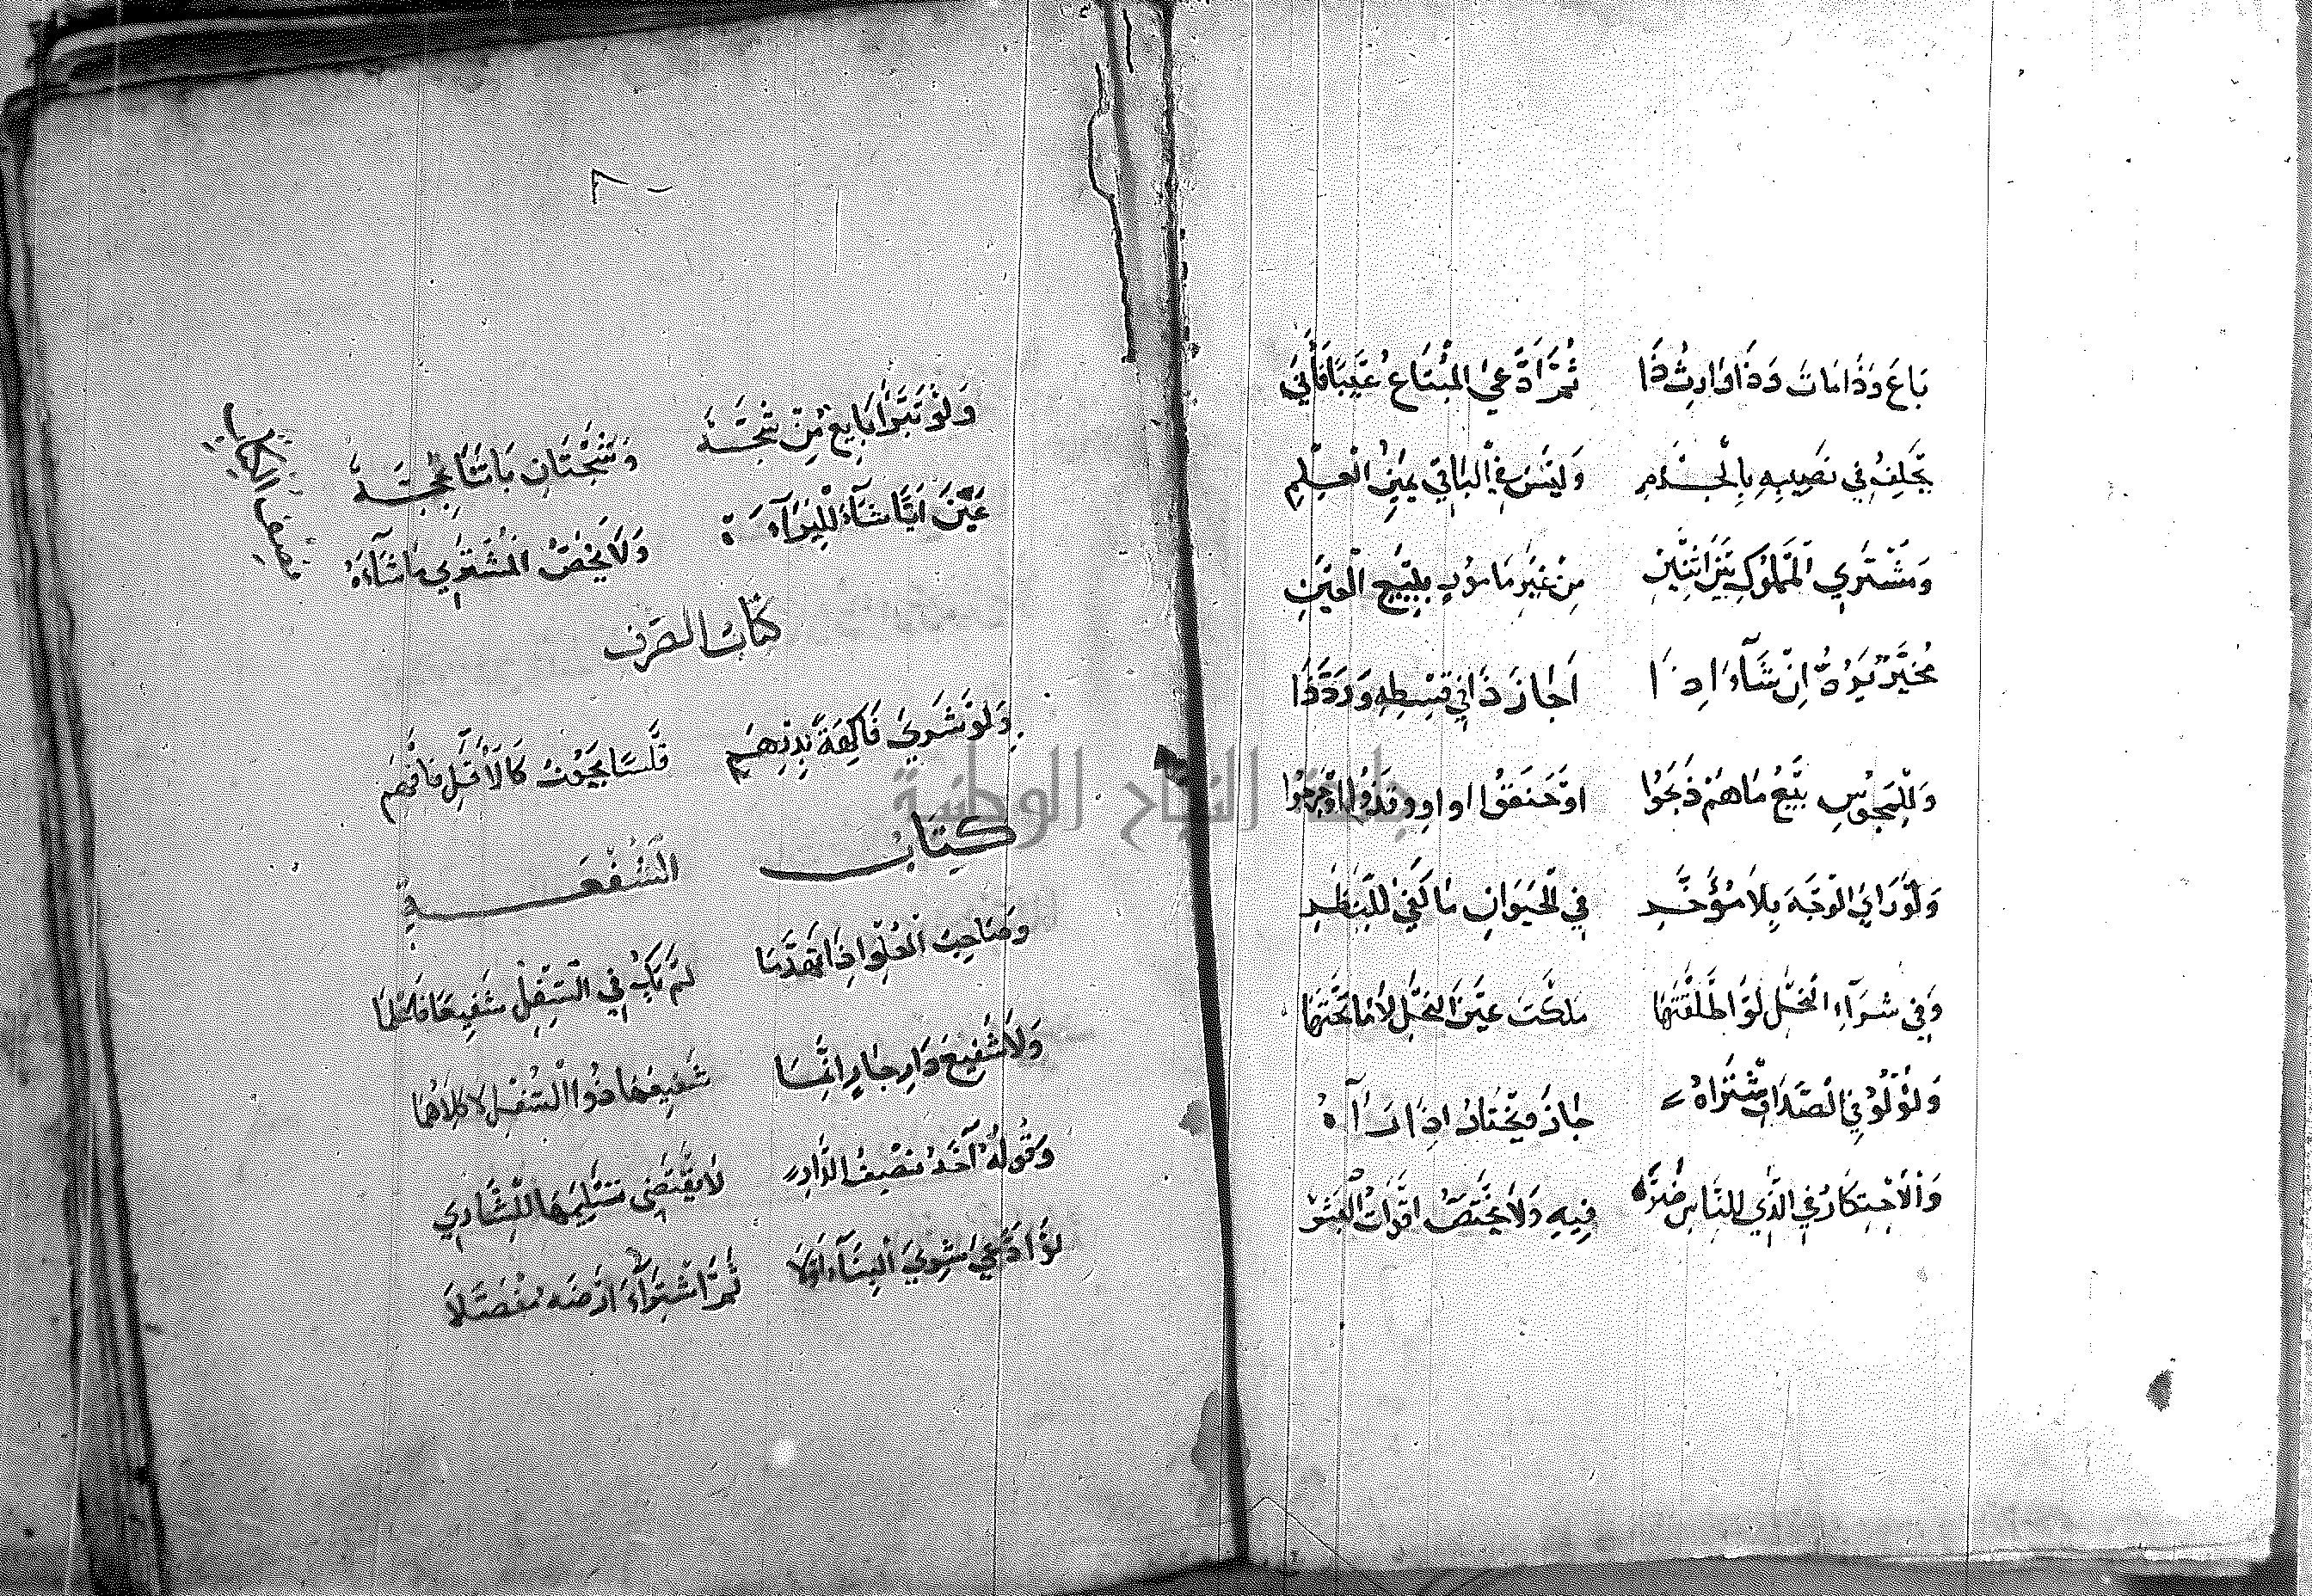 بَاعَ وَذَا مَاتَ وَذَا وَارِثُ ذَا ثُمَّ ادَّعَى المُبْتَاعُ عَيْبًا فَأَتَى
يَحْلِفُ فِي نَصِيبِهِ بِالْجَزْمِ وَلَيْسَ فِي البَاقِي يَمِينُ الْعِلْمِ
وَمُشْتَرِي الْمَمْلُوكِ مِنْ اثْنَيْنِ مِنْ غَيْرِ مَامُونٍ بِبَيْعِ الْعَيْنِ
مُخَيَّرٌ يَرُدُّ إِنْ شَاءَ إِذَا أَجَازَ ذَا فِي قِسْطِهِ وَرَدَّ ذَا
وَلِلْمَجُوسِ بَيْعُ مَا هُمْ ذَبَحُوا اوْ خَنَقُوا او
وَلَوْ رَأَى الْوَجْهَ بِلَا مُؤَخَّرِ فِي الْحَيَوَانِ مَا كَفَى لِلنَّظَرِ
وَفِي شِرَآءِ النَّخْلِ لَوْ أَطْلَقْتَهَا مَلَكْتَ عَيْنَ النَّخْلِ لَا مَا تَحْتَهَا
وَلُؤْلُؤٌ فِي الصَّدَفِ اشْتَرَاهُ جَازَ وَيَخْتَارُ اذَا رَآهُ
وَالْاحْتِكَارُ فِي الَّذِي لِلنَّاسِ ضَرّ فِيهِ وَلَا يَخْتَصُّ اقْوَاتُ الْبَشَرْ
٨٠
وَلَوْ تَبَرَّا بَايِعٌ مِنْ شَجَّهْ وَشَجَّتَانِ بَانَتَا بِحُجَّهْ
عَيَّنَ أَيًّا شَآءَ لِلْبَرَآءَهْ وَلَا يَخُصُّ الْمُشْتَرِي مَا شَآءَهُ
كِتَابُ الصَّرْفِ
وَلَوْ شَرَى فَاكِهَةً بِدِرْهَمٍ فَلْسًا يَجُوزُ كَالْأَقَلِّ فَافْهَمِ
كِتَابُ الشُّفْعَةِ
وَصَاحِبُ الْعُلْوِ إِذَا تَهَدَّمَا لَمْ يَكُ فِي السُّفْلِ شَفِيعًا فَاعْلَمَا
وَلَا شَفِيعَ دَارِ جَارٍ إِنَّمَا شَفِيعُهَا ذُو السُّفْلِ لَا كِلَاهُمَا
وَقَوْلُهُ آخُذُ نِصْفَ الدَّارِ لَا يَقْتَضِي تَسْلِيمَهَا لِلشَّارِي
لَوْ ادَّعَى شِرَى الْبِنَآءِ أَوَّلَا ثُمَّ اشْتِرَآءَ ارْضِهِ مُفَصَّلَا